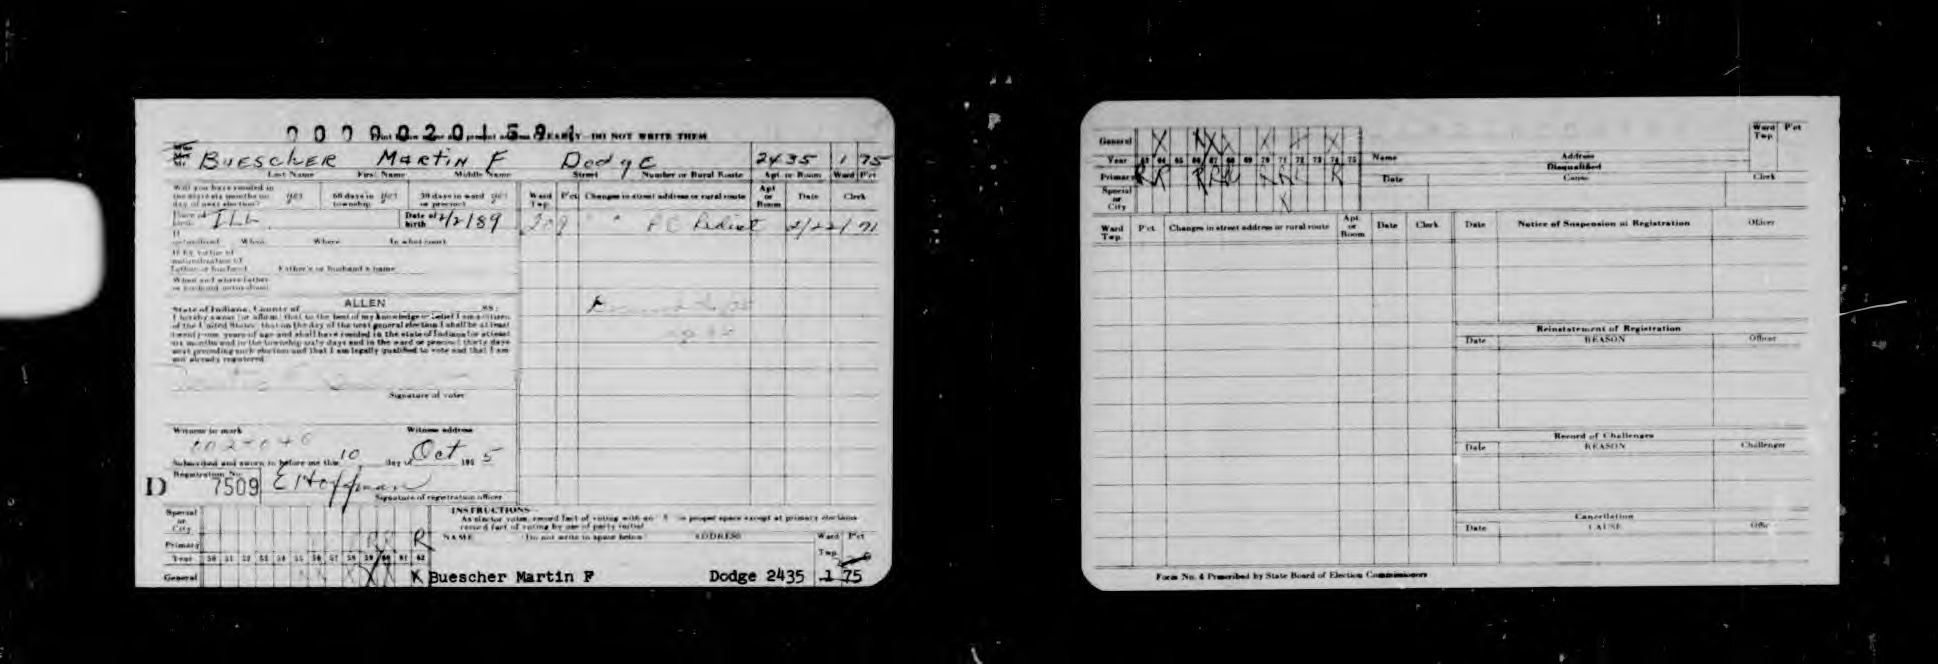 0000020159
DO NOT WRITE THEM
BUESCHER MARTIN F Dodge 2435 1 75
Last Name First Name Middle Name Street Number or Rural Route Apt. or Room Ward P'ct
Will you have resided in the state six months on day of next election? yes 60 days in township yes 30 days in ward or precinct yes
Ward Twp. P'ct Changes in street address or rural route Apt or Room Date Clerk
Place of birth ILL Date of birth 2/2/89
209 " " PC Redist 2/22/71
If naturalized When Where In what court
If by virtue of naturalization of father or husband Father's or husband's name
When and where father or husband naturalized
State of Indiana, County of ALLEN ss:
I hereby swear (or affirm) that to the best of my knowledge or belief I am a citizen
of the United States; that on the day of the next general election I shall be at least
twenty-one years of age and shall have resided in the state of Indiana for at least
six months and in the township sixty days and in the ward or precinct thirty days
next preceding such election and that I am legally qualified to vote and that I am
not already registered
Signature of voter
Witness to mark Witness address
Subscribed and sworn to before me this 10 day of Oct 195 5
Registration No.
D 7509 E Hoffman
Signature of registration officer
INSTRUCTIONS
As elector votes, record fact of voting with an X in proper space except at primary elections
record fact of voting by use of party initial
Special or City
Primary R R R
Year 50 51 52 53 54 55 56 57 58 59 60 61 62
General X X X
NAME (Do not write in space below) ADDRESS Ward Twp. P'ct
Buescher Martin F Dodge 2435 1 75
General X X X X X X
Year 63 64 65 66 67 68 69 70 71 72 73 74 75
Primary R R R R R R
Special or City
Name Address Ward Twp. P'ct
Disqualified
Date Cause Clerk
Ward Twp. P'ct Changes in street address or rural route Apt. or Room Date Clerk
Date Notice of Suspension of Registration Officer
Reinstatement of Registration
Date REASON Officer
Record of Challenges
Date REASON Challenger
Cancellation
Date CAUSE
Form No. 4 Prescribed by State Board of Election Commissioners